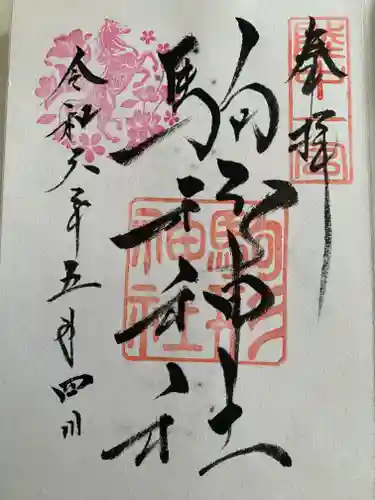 奉拝
駒形神社
駒形神社
令和六年五月四日